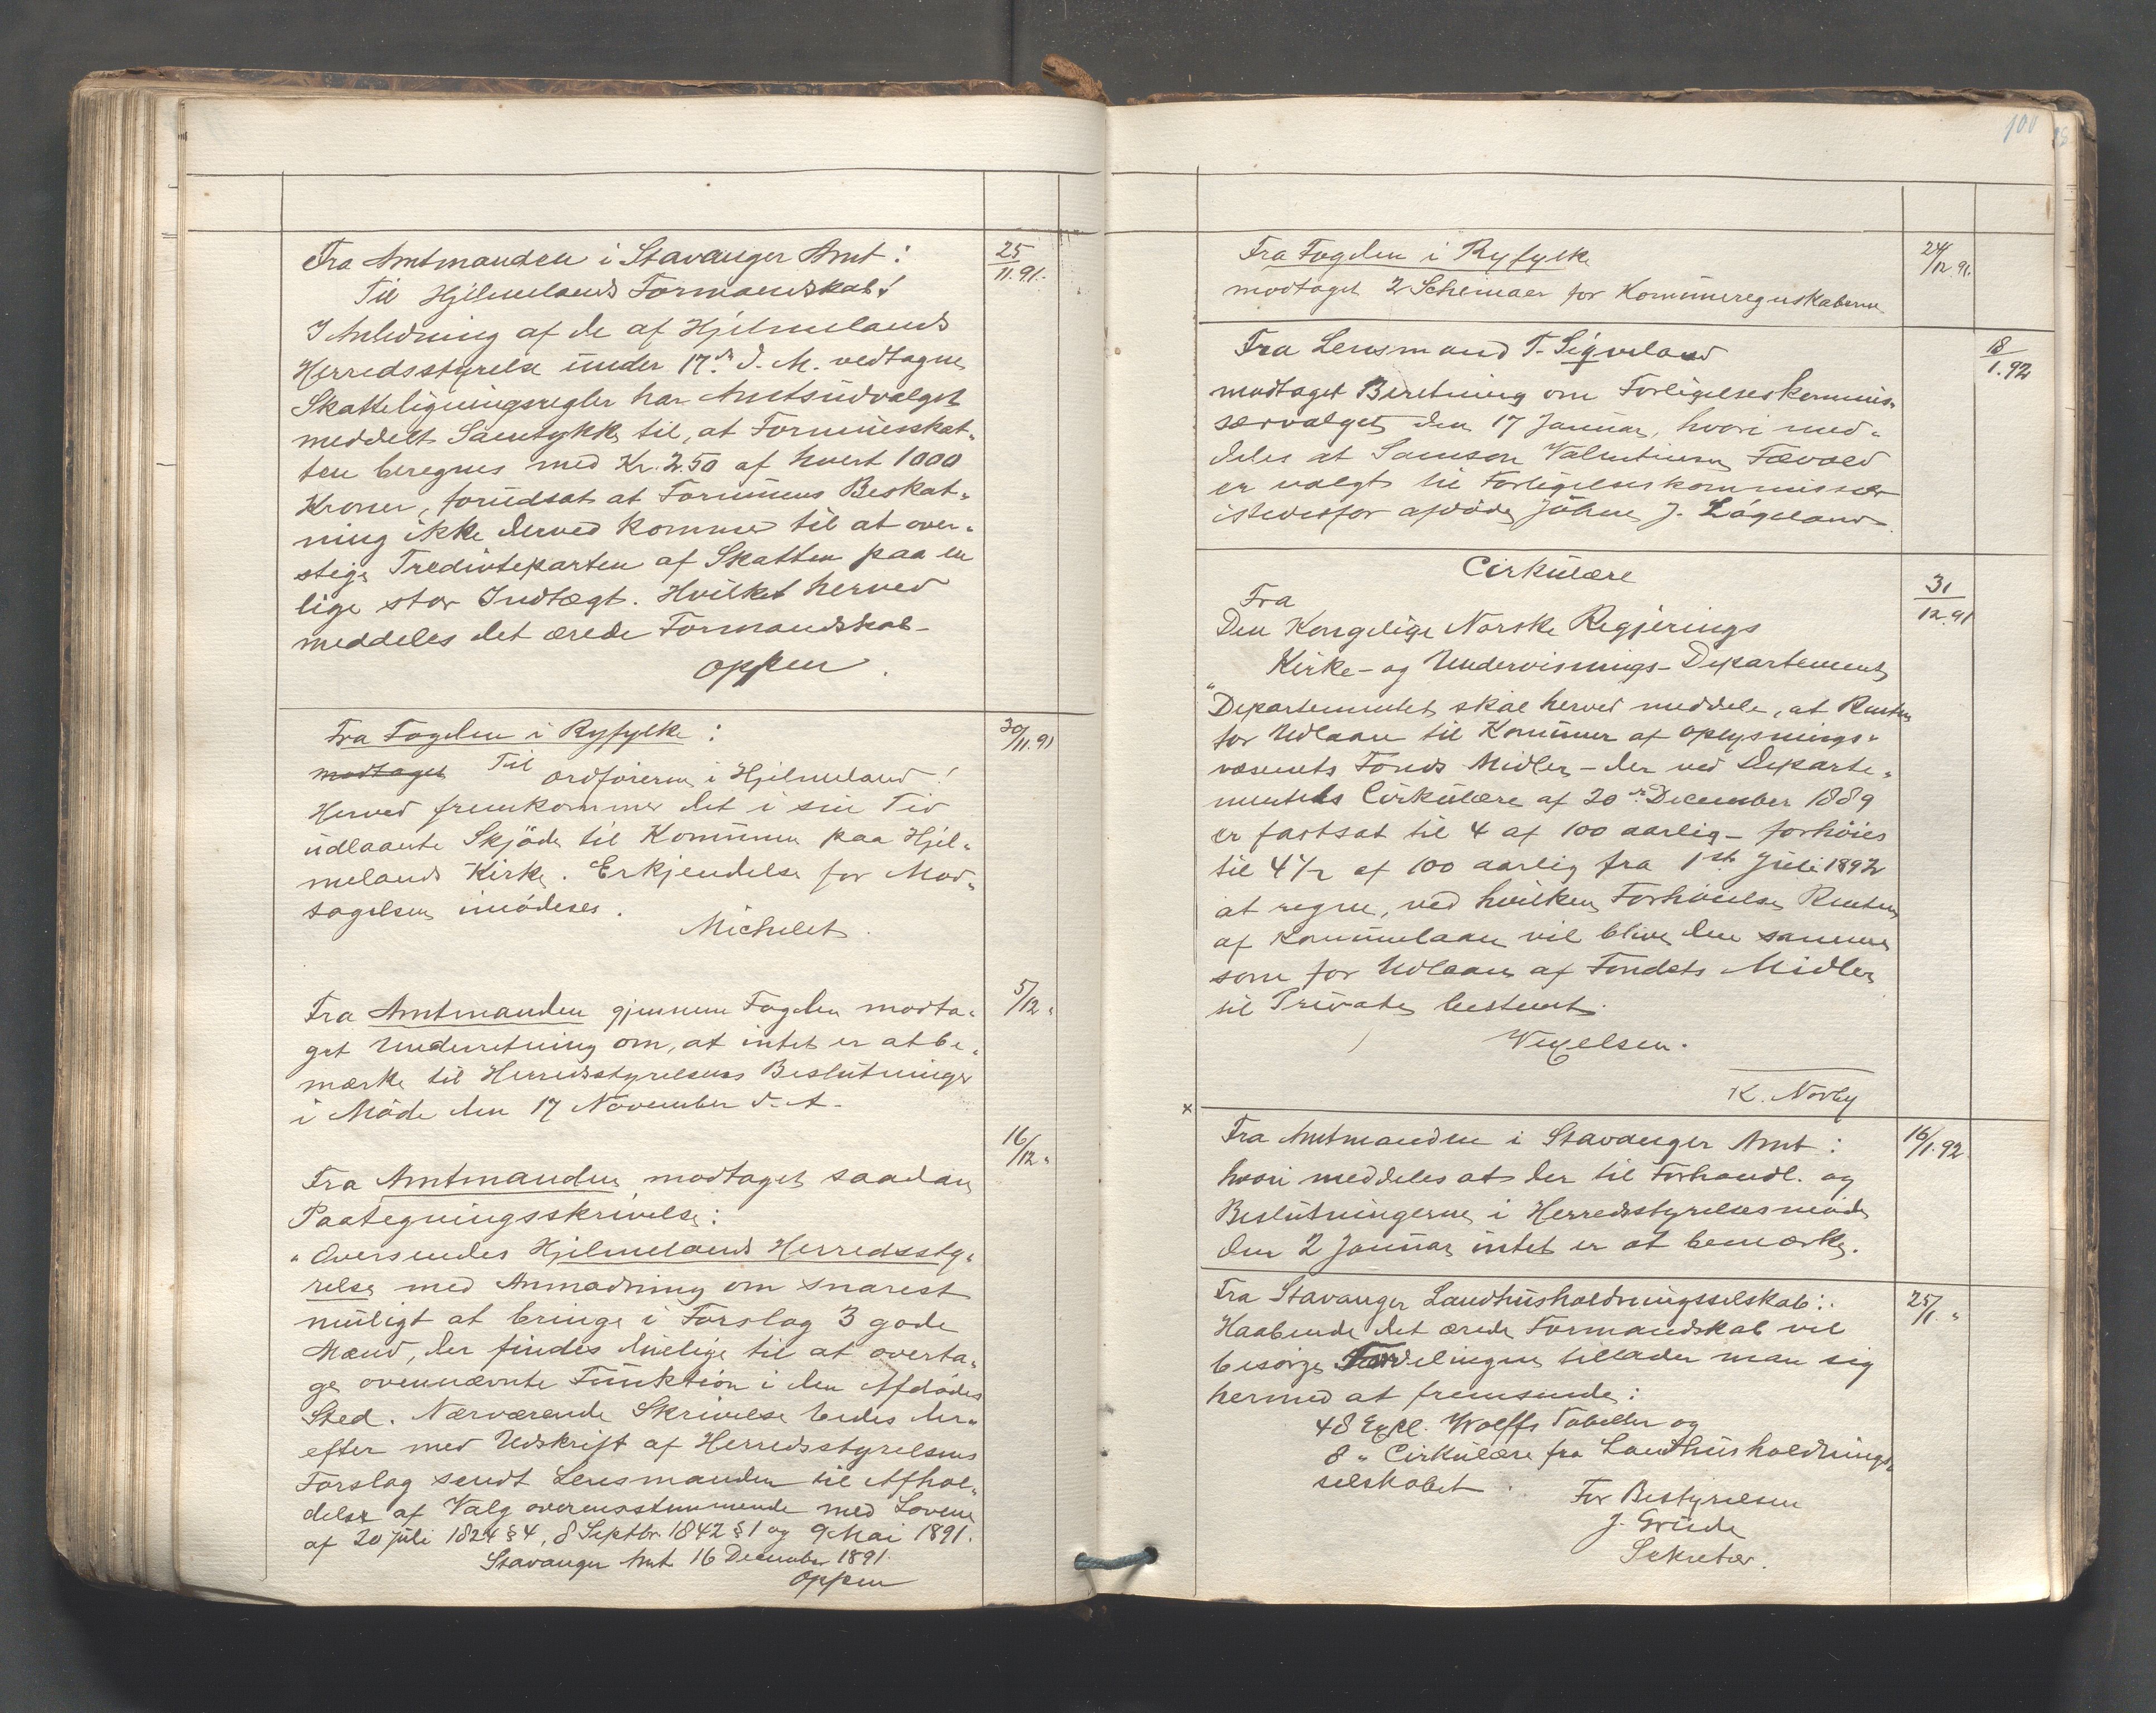 Fra Amtmanden i Stavanger Amt:
25/11.91.
Til Hjelmelands Formandskab!
I Anledning af de af Hjelmelands
Herredsstyrelse under 17de d. M. vedtagne
Skatteligningsregler har Amtsudvalget
meddelt Samtykke til, at Formuesskat-
ten beregnes med Kr. 2.50 af hvert 1000
Kroner, forudsat at Formuens Beskat-
ning ikke derved kommer til at over-
stige Tredivteparten af Skatten paa en
lige stor Indtægt. Hvilket herved
meddeles det ærede Formandskab-
Oppen.
Fra Fogden i Ryfylke:
30/11.91
modtaget Til Ordføreren i Hjelmeland!
Herved fremkommer det i sin Tid
udlaante Skjøde til Kommunen paa Hjel-
melands Kirke. Erkjendelse for Mod-
tagelsen imødesees.
Michelet.
Fra Amtmanden gjennem Fogden modta-
5/12 "
get Underretning om, at intet er at be-
mærke til Herredsstyrelsens Beslutninger
i Møde den 17 November d. A.
16/12 "
Fra Amtmanden modtaget saadan
Paategningsskrivelse:
"Oversendes Hjelmelands Herredssty-
relse med Anmodning om snarest
muligt at bringe i Forslag 3 gode
Mænd, der findes duelige til at overta-
ge ovennævnte Funktion i den Afdødes
Sted. Nærværende Skrivelse bedes der-
efter med Udskrift af Herredsstyrelsens
Forslag sendt Lensmanden til Afhol-
delse af Valg overensstemmende med Lovene
af 20 Juli 1824 § 4, 8 Septbr. 1842 § 1 og 9 Mai 1891.
Stavanger Amt 16 December 1891.
Oppen
100
Fra Fogden i Ryfylke
24/12.91.
modtaget 2 Schemaer for Kommuneregnskaberne
Fra Lensmand T. Sigveland
18/1.92
modtaget Beretning om Forligelseskommis-
særvalget den 17 Januar, hvori med-
deles at Samson Valentinsen Fævold
er valgt til Forligelseskommissær
istedetfor afdøde Johne J. Laugeland.
Cirkulære
31/12.91
Fra
Den Kongelige Norske Regjerings
Kirke- og Undervisnings-Departement
"Departementet skal herved meddele, at Renten
for Udlaan til Kommuner af Oplysnings-
væsenets Fonds Midler - der ved Departe-
mentets Cirkulære af 20de December 1889
er fastsat til 4 af 100 aarlig - forhøies
til 4 1/2 af 100 aarlig fra 1ste Juli 1892
at regne, ved hvilken Forhøielse Renten
af Kommunelaan vil blive den samme
som for Udlaan af Fondets Midler
til Private bestemt.
Wexelsen.
K. Norby
x
Fra Amtmanden i Stavanger Amt:
16/1.92.
hvori meddeles at der til Forhandl. og
Beslutningerne i Herredsstyrelsesmøde
den 2 Januar intet er at bemærke.
Fra Stavanger Landhusholdningsselskab:
25/1. "
Haabende det ærede Formandskab vil
besørge Fordelingen tillader man sig
hermed at fremsende:
48 Expl. Wolffs Tabeller og
8 " Cirkulære fra Landhusholdnings-
selskabet.
For Bestyrelsen
J. Grude
Sekretær.